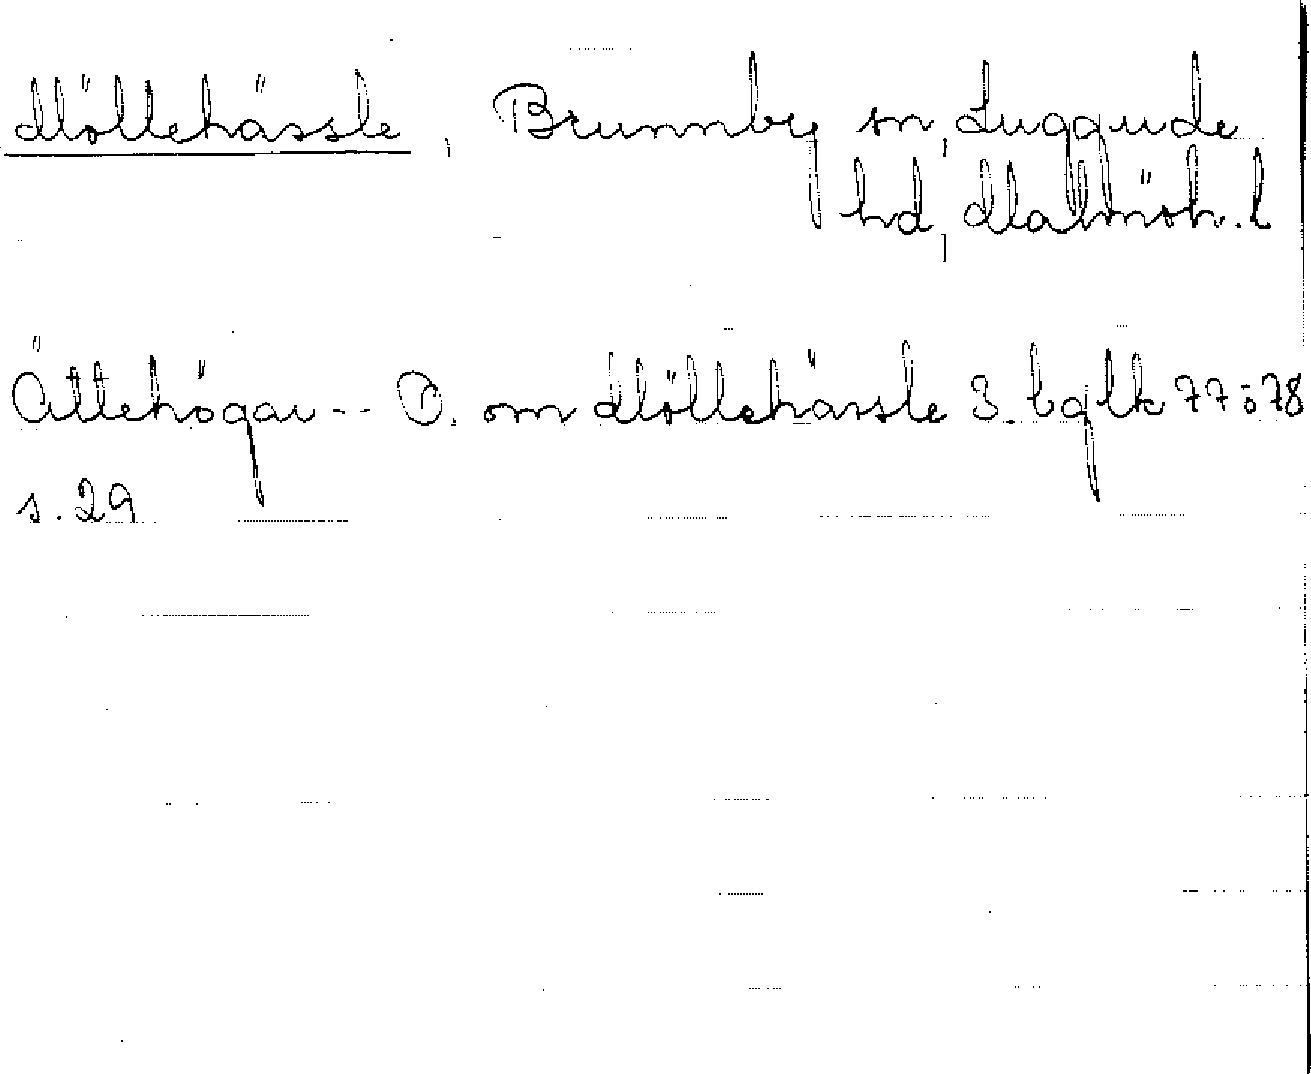 Möllehässle, Brunnby sn, Luggude
hd, Malmöh. l
Ättehögar -- O. om Möllehässle 3. bglk 77:78
s. 29